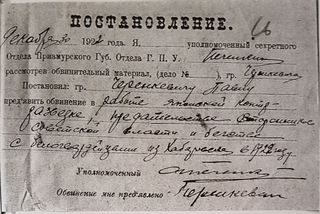 ПОСТАНОВЛЕНИЕ.
Декабря 30 1922 года. Я, уполномоченный секретного
Отдела Приамурского Губ. Отдела Г. П. У.
рассмотрев обвинительный материал, (дело № ), гр.
Постановил: гр. Черенкевичу Павлу
пред'явить обвинение в работе Японской контр-
разведке, предательстве сторонников
Советской власти и бегстве
с белогвардейцами из Хабаровска в 1922 году
Уполномоченный
Обвинение мне пред'явлено